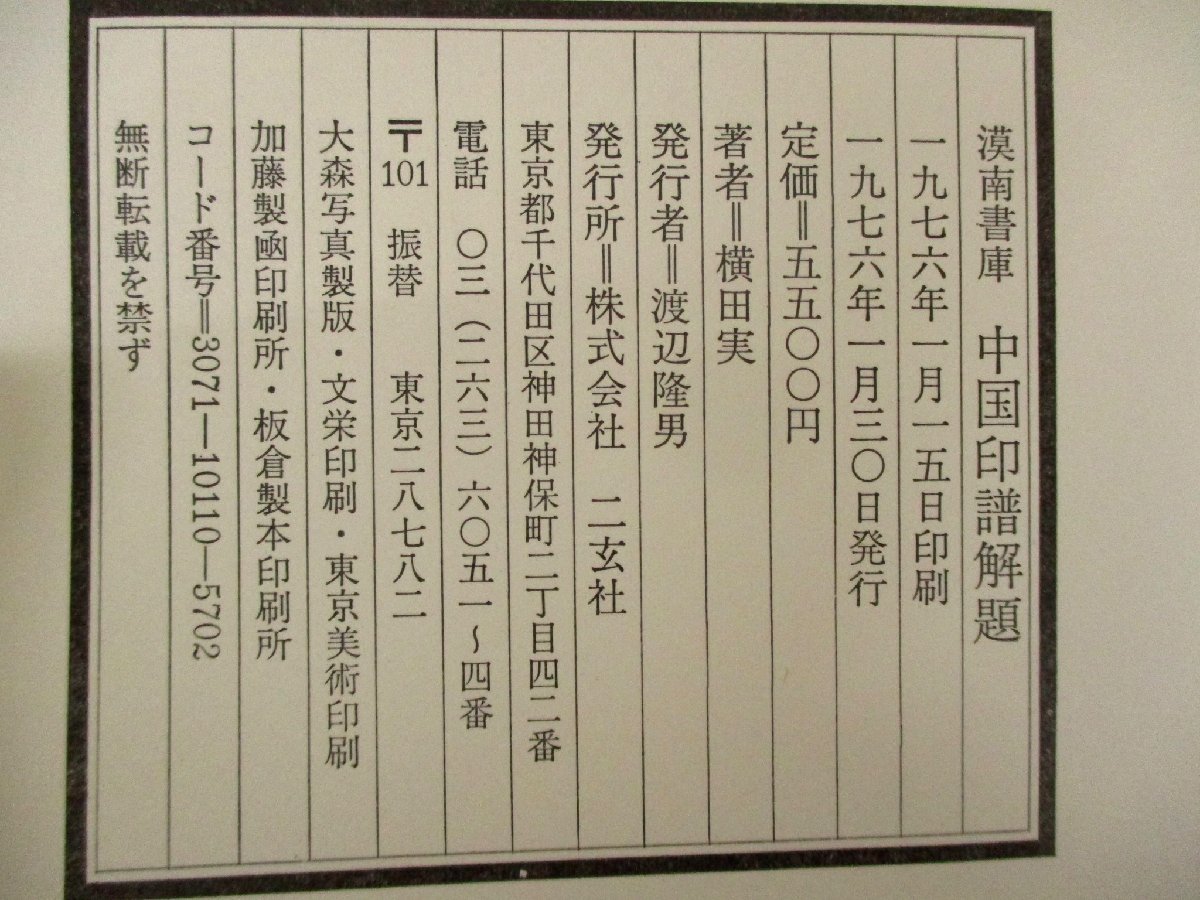 漠南書庫 中国印譜解題
一九七六年一月一五日印刷
一九七六年一月三〇日発行
定価＝五五〇〇円
著者＝横田実
発行者＝渡辺隆男
発行所＝株式会社 二玄社
東京都千代田区神田神保町二丁目四二番
電話 〇三（二六三）六〇五一〜四番
〒101 振替 東京二八七八二
大森写真製版・文栄印刷・東京美術印刷
加藤製凾印刷所・板倉製本印刷所
コード番号＝3071―10110―5702
無断転載を禁ず